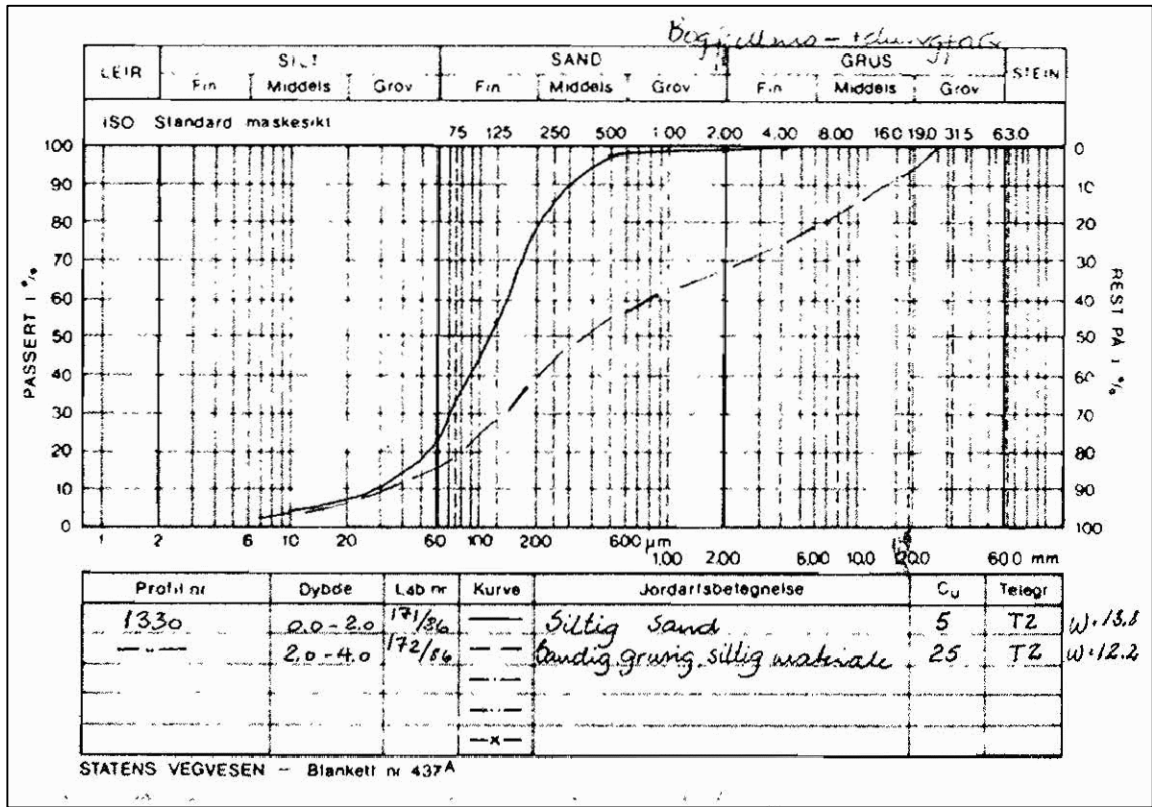 SILT SAND GRUS
LEIR STEIN
Fin Middels Grov Fin Middels Grov Fin Middels Grov
ISO Standard maskesikt 75 125 250 500 1.00 2.00 4.00 8.00 16.0 19.0 31.5 63.0
100 0
90 10
80 20
70 30
60 40
50 50
40 60
30 70
20 80
10 90
0 100
PASSERT I %
REST PÅ I %
1 2 6 10 20 60 100 200 600 µm
1.00 2.00 5.00 10.0 20.0 60.0 mm
Profil nr Dybde Lab nr Kurve Jordartsbetegnelse Cu Telegr
1330 0.0-2.0 171/86 Siltig sand 5 T2 W=13.8
—"— 2.0-4.0 172/86 Sandig, grusig, siltig materiale 25 T2 W=12.2
—x—
STATENS VEGVESEN - Blankett nr 437A